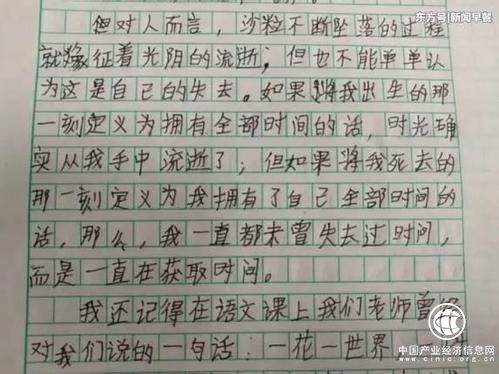 东方号|新闻早餐
但对人而言，沙粒不断坠落的过程
就像征着光阴的流逝；但也不能单单认
为这是自己的失去。如果将我出生的那
一刻定义为拥有全部时间的话，时光确
实从我手中流逝了；但如果将我死去的
那一刻定义为我拥有了自己全部时间的
话，那么，我一直都未曾失去过时间，
而是一直在获取时间。
我还记得在语文课上我们老师曾经
对我们说的一句话：一花一世界
中国产业经济信息网
www.cinic.org.cn